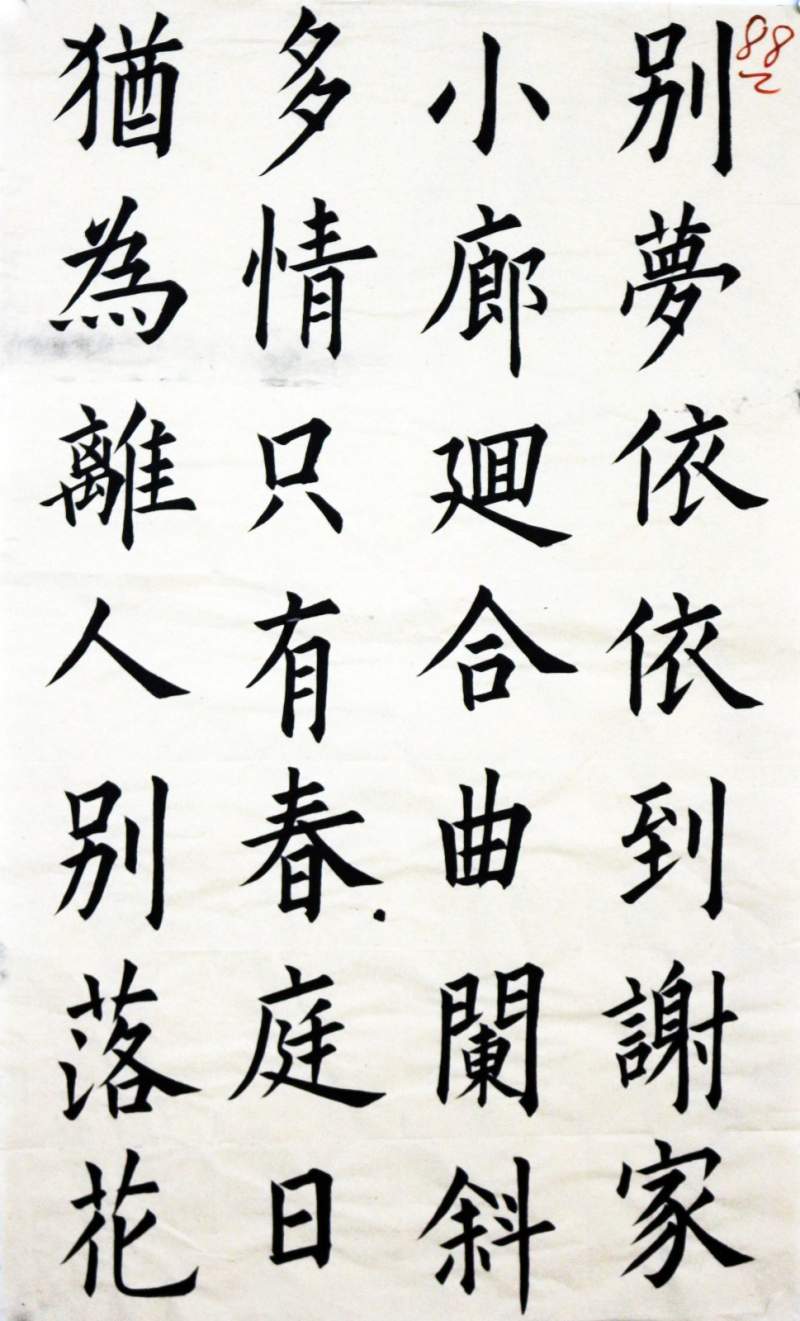 88
别夢依依到謝家
小廊廻合曲闌斜
多情只有春庭日
猶為離人别落花